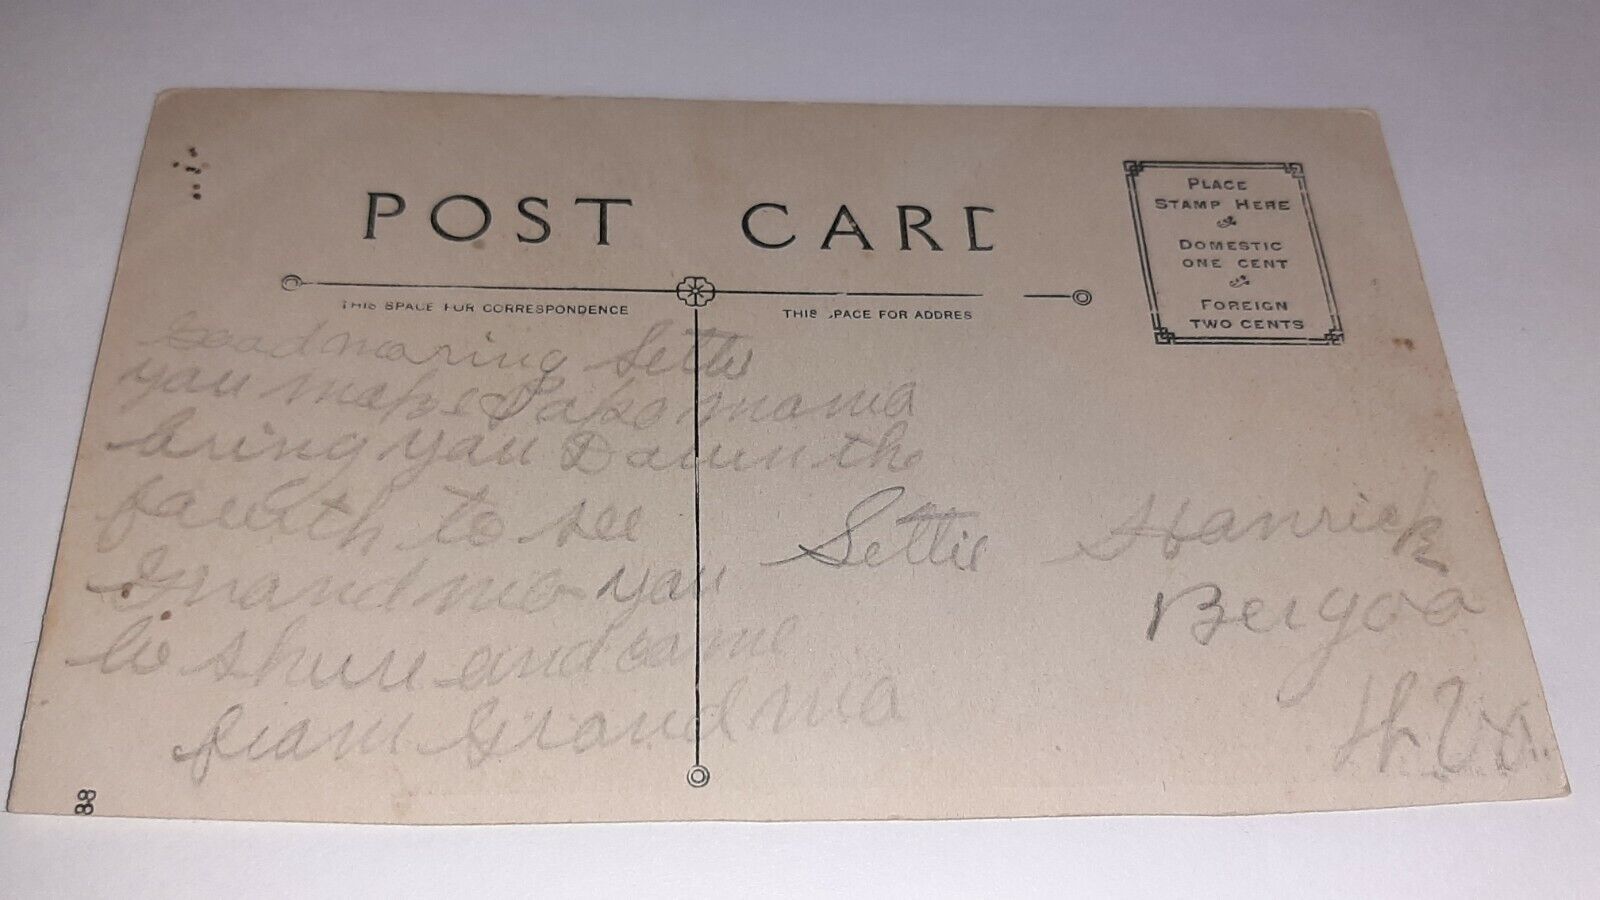 POST CARD
THIS SPACE FOR CORRESPONDENCE
THIS PACE FOR ADDRES
PLACE
STAMP HERE
DOMESTIC
ONE CENT
FOREIGN
TWO CENTS
Good moring Settie
you make Papa mama
bring you Down the
fourth to see
Grandma you
be shure and come
from Grandma
Settie Hanrick
Bergoo
W. Va.
88